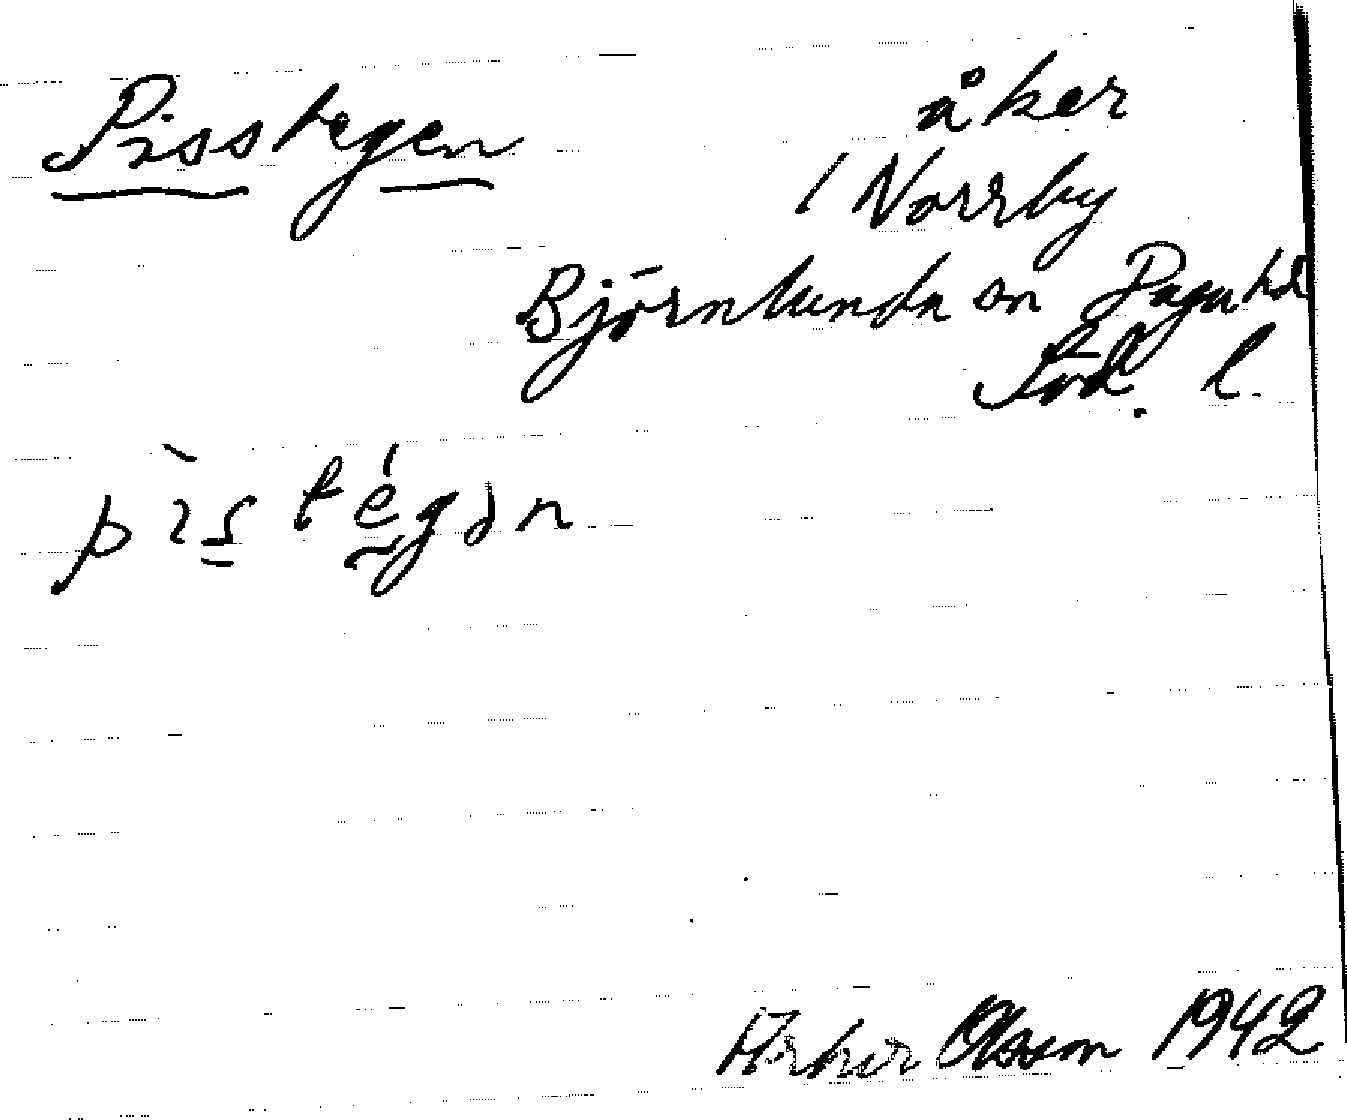 Pisstegen
åker
i Norrby
Björnlunda sn Daga hd
Söd. l.
pìstégən
Arthur Olsson 1942